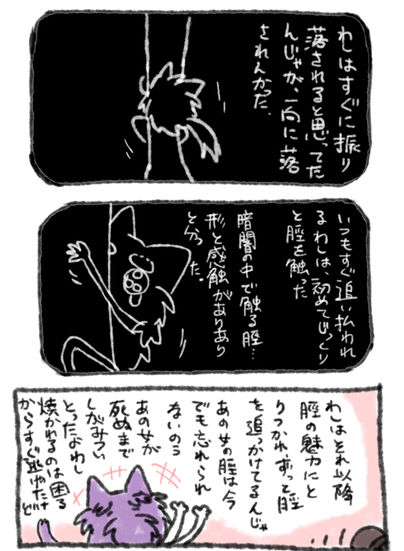 わしはすぐに振り
落されると思ってた
んじゃが、一向に落
されんかった。
いつもすぐ追い払われ
るわしは、初めてじっくり
と脛を触った
暗闇の中で触る脛…
形と感触がありあり
と分った。
わしはそれ以降
脛の魅力にと
りつかれ、ずっと脛
を追っかけてるんじゃ
あの女の脛は今
でも忘れられ
ないのう
あの女が
死ぬまで
しがみつい
とったよわし
焼かれるのは困る
からすぐ逃げたけど